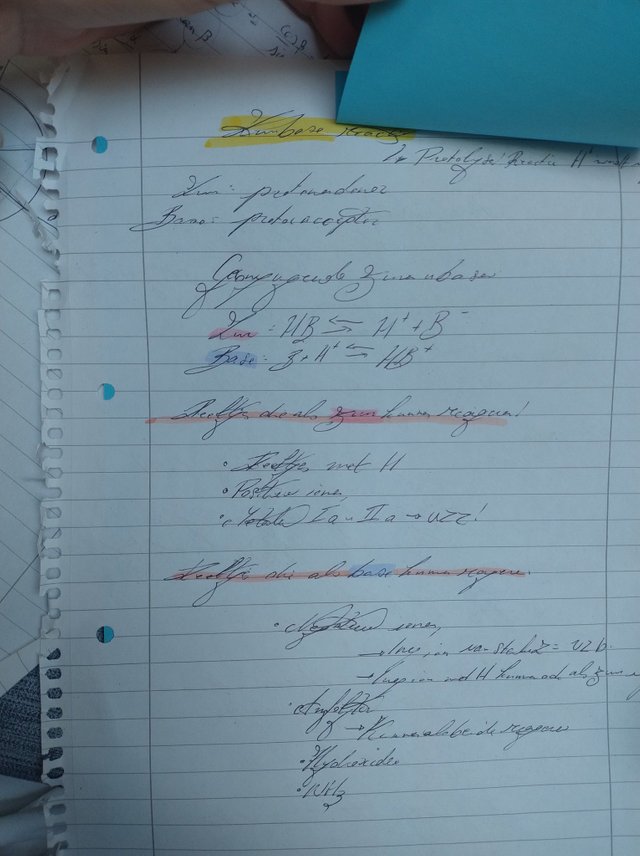 Zuurbase reactie
Protolyse: Reactie H⁺
Zuur: protonendonor
Base: protonacceptor
Geconjugeerde zuren base
Zuur: HB ⇌ H⁺ + B⁻
Base: B + H⁺ ⇌ HB⁺
Deeltjes die als zuur kunnen reageren!
• Deeltjes met H
• Positieve ionen,
• Ia II a → UZZ!
Deeltjes die als base kunnen reageren.
• Negatieve ionen,
→ ion = UZB
→ ion met H kunnen ook als zuur
• Amfolyten
→ Kunnen als beide reageren
• Hydroxiden
• NH₃